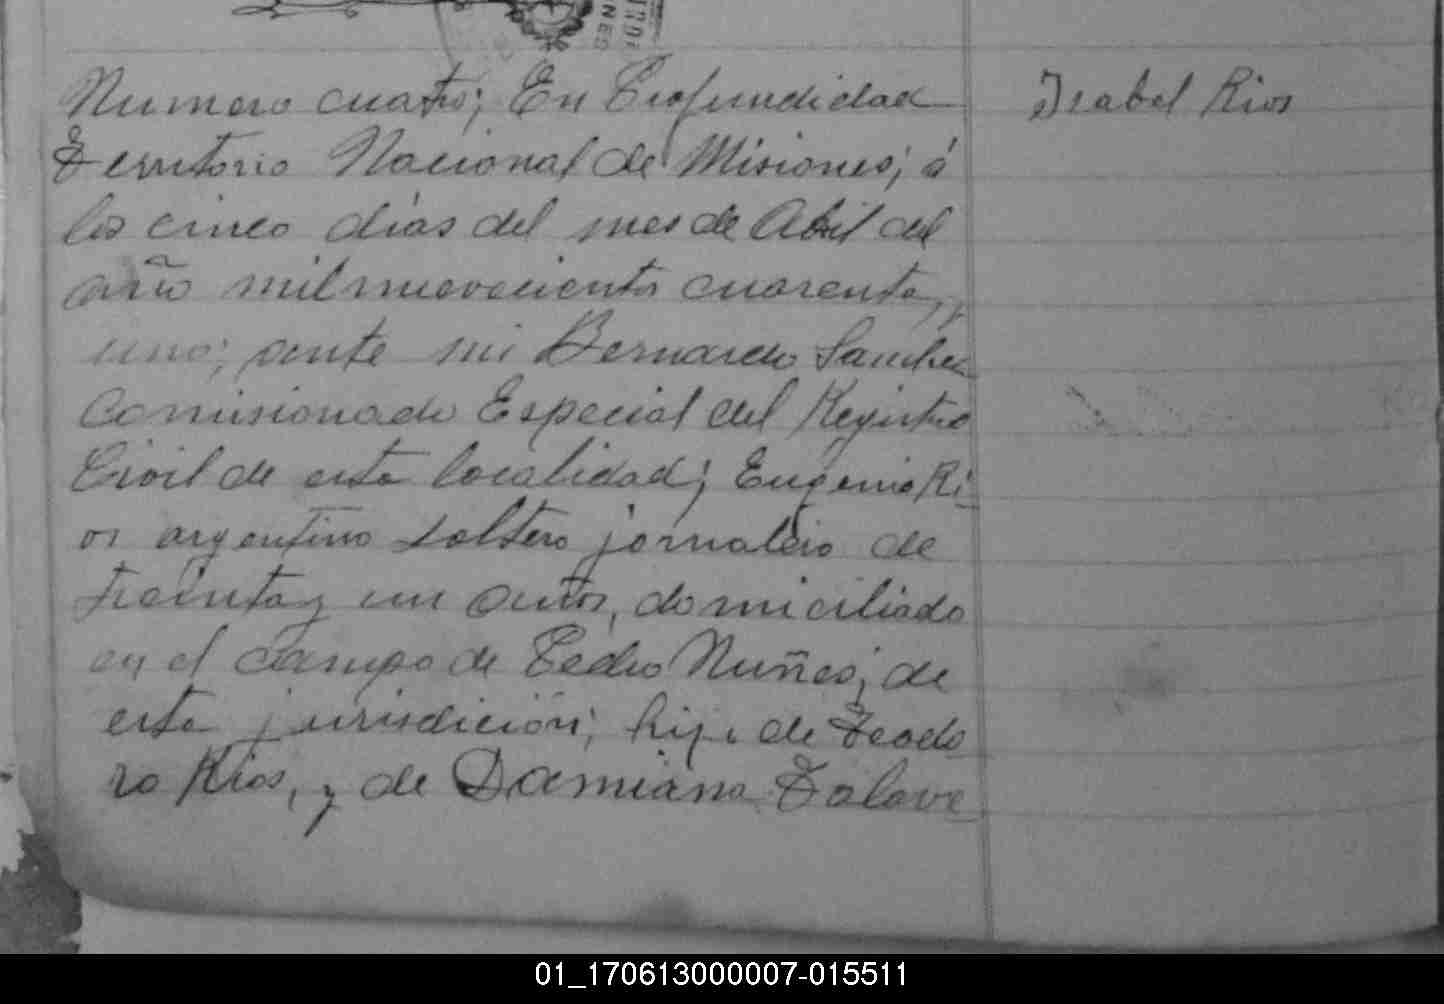 Numero cuatro; En Profundidad
Territorio Nacional de Misiones; á
los cinco dias del mes de Abril del
año mil novecientos cuarenta y
uno; ante mi Bernardo Sanchez
Comisionado Especial del Registro
Civil de esta localidad; Eugenio Ri-
os argentino soltero jornalero de
treinta y un años, domiciliado
en el campo de Pedro Nuñes; de
esta jurisdicción; hijo de Teodo
ro Rios, y de Damiana Talave
Isabel Rios
01_170613000007-015511